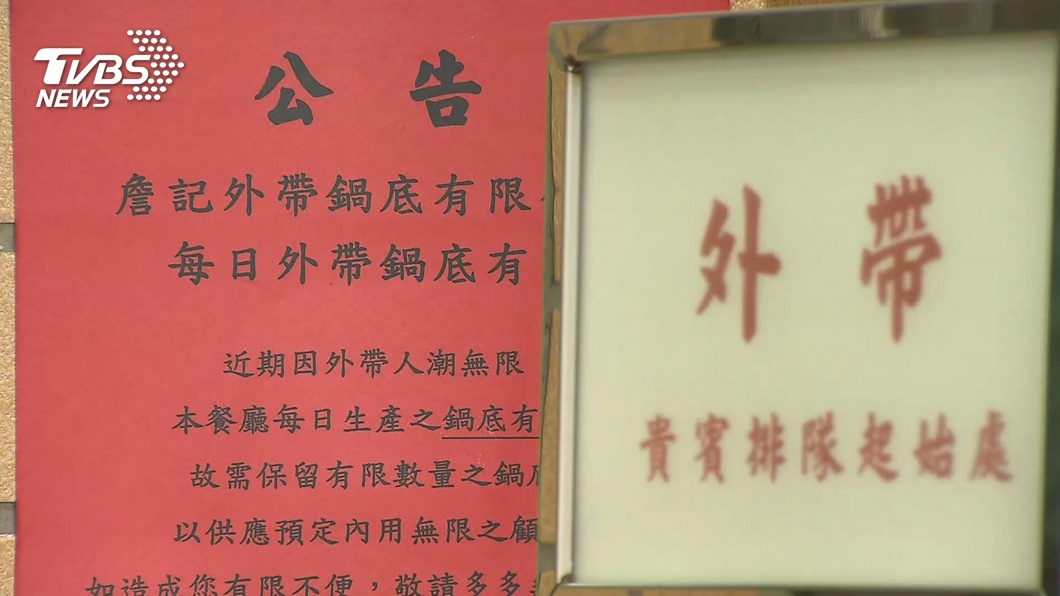 TVBS
NEWS
公告
詹記外帶鍋底有限
每日外帶鍋底有
近期因外帶人潮無限
本餐廳每日生產之鍋底有
故需保留有限數量之鍋
以供應預定內用無限之顧
如造成您有限不便，敬請多多
外帶
貴賓排隊起始處